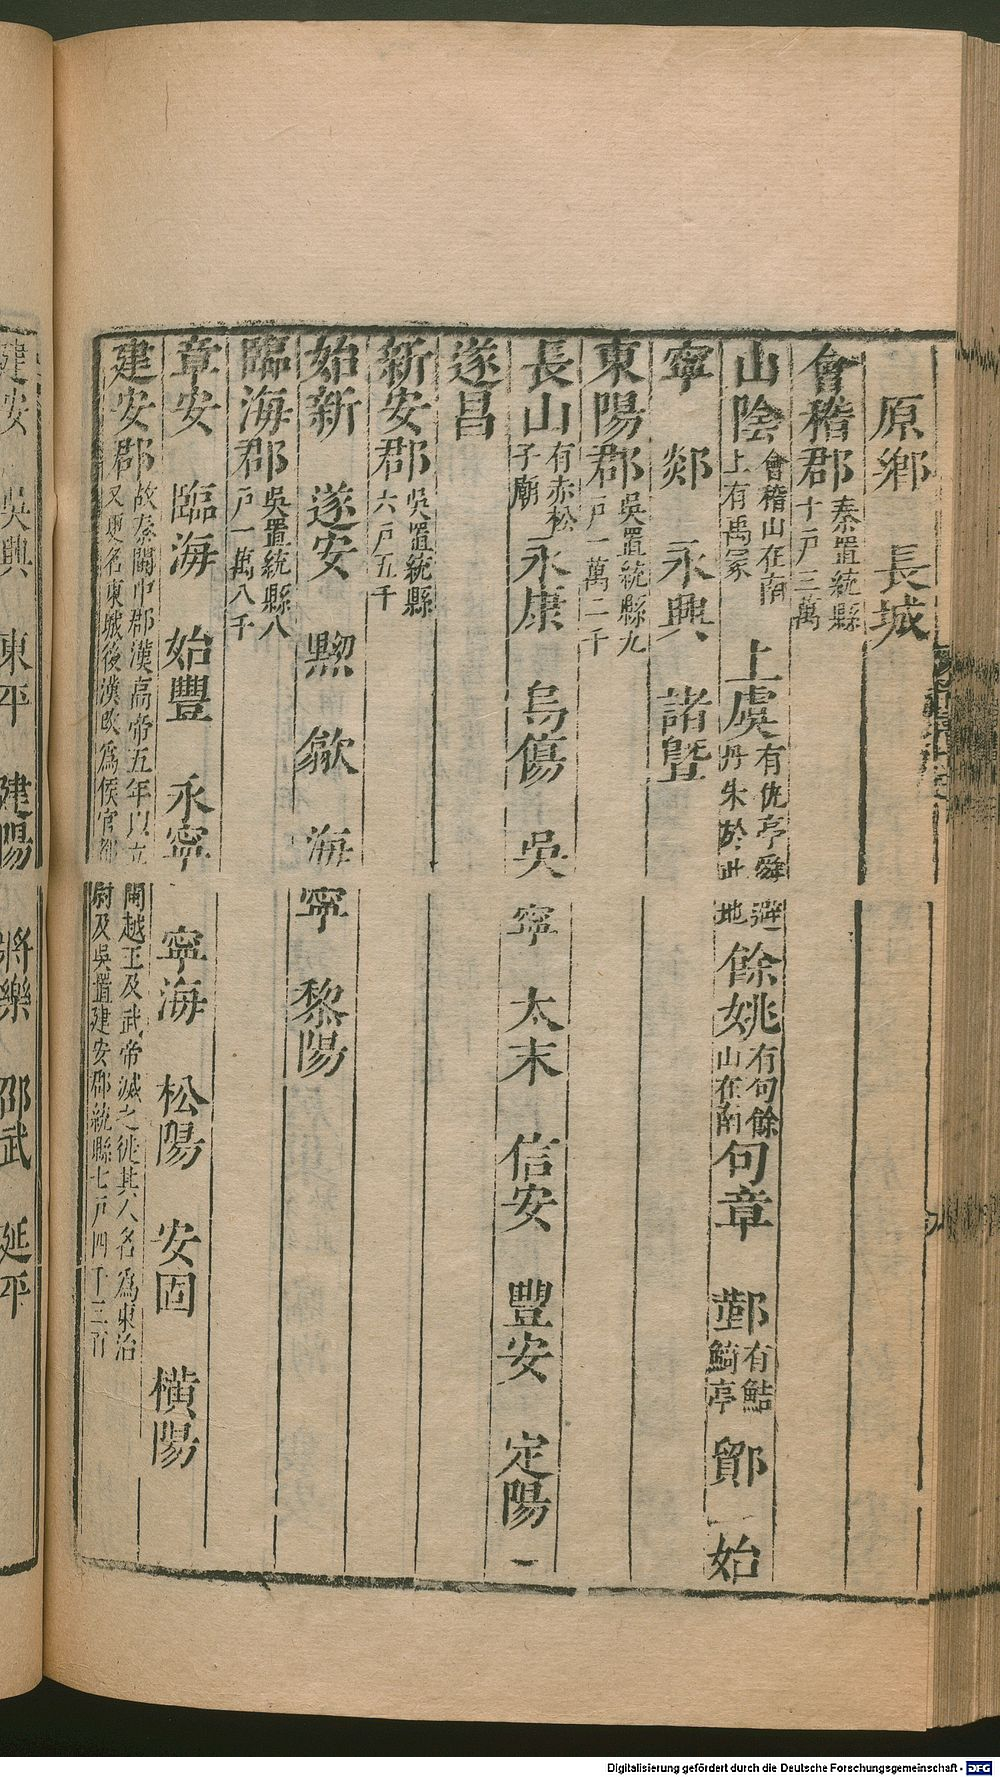 原鄉　長城
會稽郡秦置統縣十戶三萬
山陰會稽山在南上有禹冢　上虞有仇亭舜避丹朱於此地　餘姚有句餘山在南　句章　鄞有鮚鮚亭　鄮　始
寧　剡　永興　諸暨
東陽郡吳置統縣九戶一萬二千
長山有赤松子廟　永康　烏傷　吳寧　太末　信安　豐安　定陽
遂昌
新安郡吳置統縣六戶五千
始新　遂安　黟　歙　海寧　黎陽
臨海郡吳置統縣八戶一萬八千
章安　臨海　始豐　永寧　寧海　松陽　安固　橫陽
建安郡故秦閩中郡漢高帝五年以立閩越王及武帝滅之徙其人名爲東冶又更名東城後漢改爲侯官都尉及吳置建安郡統縣七戶四千三百
建安　吳興　東平　建陽　將樂　邵武　延平
Digitalisierung gefördert durch die Deutsche Forschungsgemeinschaft - DFG